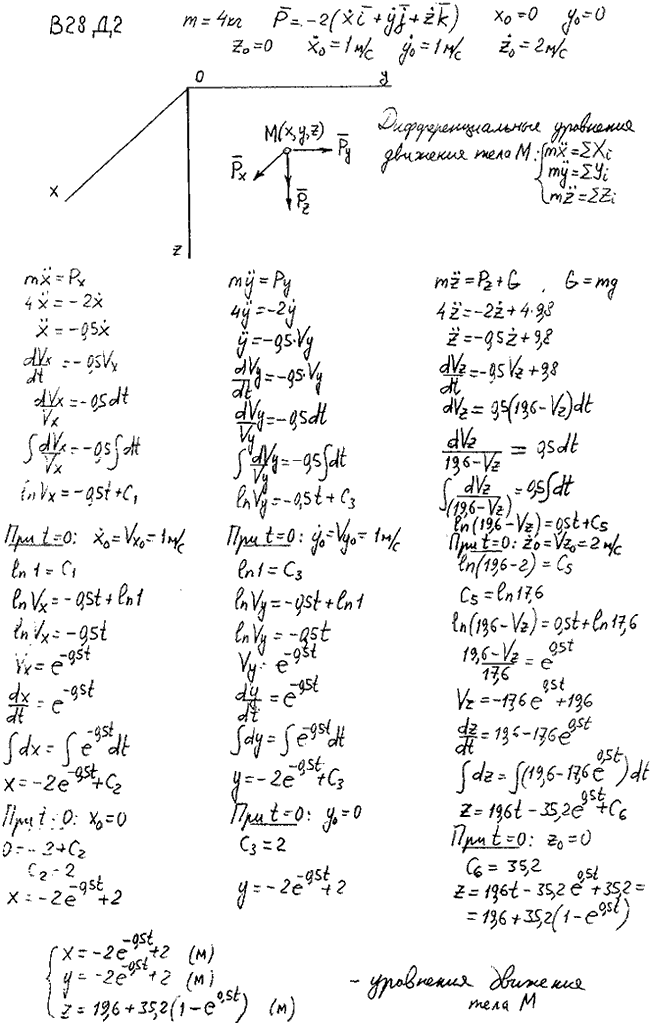 В28 Д.2 m = 4кг P̄ = -2(ẋi̅ + ẏj̅ + żk̅) x₀=0 y₀=0
z₀=0 ẋ₀=1м/с ẏ₀=1м/с ż₀=2м/с
O y
M(x,y,z)
P̄y
P̄x
P̄z
x
z
Дифференциальные уравнения
движения тела М:
mẍ=ΣXi
mÿ=ΣYi
mz̈=ΣZi
mẍ = Px
4ẍ = -2ẋ
ẍ = -0,5ẋ
dVx/dt = -0,5Vx
dVx/Vx = -0,5dt
∫dVx/Vx = -0,5∫dt
lnVx = -0,5t + C₁
При t=0: ẋ₀=Vx₀=1м/с
ln1 = C₁
lnVx = -0,5t + ln1
lnVx = -0,5t
Vx = e^-0,5t
dx/dt = e^-0,5t
∫dx = ∫e^-0,5t dt
x = -2e^-0,5t + C₂
При t=0: x₀=0
0 = -2 + C₂
C₂ = 2
x = -2e^-0,5t + 2
mÿ = Py
4ÿ = -2ẏ
ÿ = -0,5·Vy
dVy/dt = -0,5·Vy
dVy/Vy = -0,5dt
∫dVy/Vy = -0,5∫dt
lnVy = -0,5t + C₃
При t=0: ẏ₀=Vy₀=1м/с
ln1 = C₃
lnVy = -0,5t + ln1
lnVy = -0,5t
Vy = e^-0,5t
dy/dt = e^-0,5t
∫dy = ∫e^-0,5t dt
y = -2e^-0,5t + C₃
При t=0: y₀=0
C₃ = 2
y = -2e^-0,5t + 2
mz̈ = Pz + G , G = mg
4z̈ = -2ż + 4·9,8
z̈ = -0,5ż + 9,8
dVz/dt = -0,5Vz + 9,8
dVz = 0,5(19,6 - Vz)dt
dVz/(19,6 - Vz) = 0,5dt
∫dVz/(19,6 - Vz) = 0,5∫dt
ln(19,6 - Vz) = 0,5t + C₅
При t=0: ż₀=Vz₀=2м/с
ln(19,6 - 2) = C₅
C₅ = ln17,6
ln(19,6 - Vz) = 0,5t + ln17,6
(19,6 - Vz)/17,6 = e^0,5t
Vz = -17,6e^0,5t + 19,6
dz/dt = 19,6 - 17,6e^0,5t
∫dz = ∫(19,6 - 17,6e^0,5t)dt
z = 19,6t - 35,2e^0,5t + C₆
При t=0: z₀=0
C₆ = 35,2
z = 19,6t - 35,2e^0,5t + 35,2 =
= 19,6 + 35,2(1 - e^0,5t)
x = -2e^-0,5t + 2 (м)
y = -2e^-0,5t + 2 (м)
z = 19,6 + 35,2(1 - e^0,5t) (м)
- уравнения движения
тела М